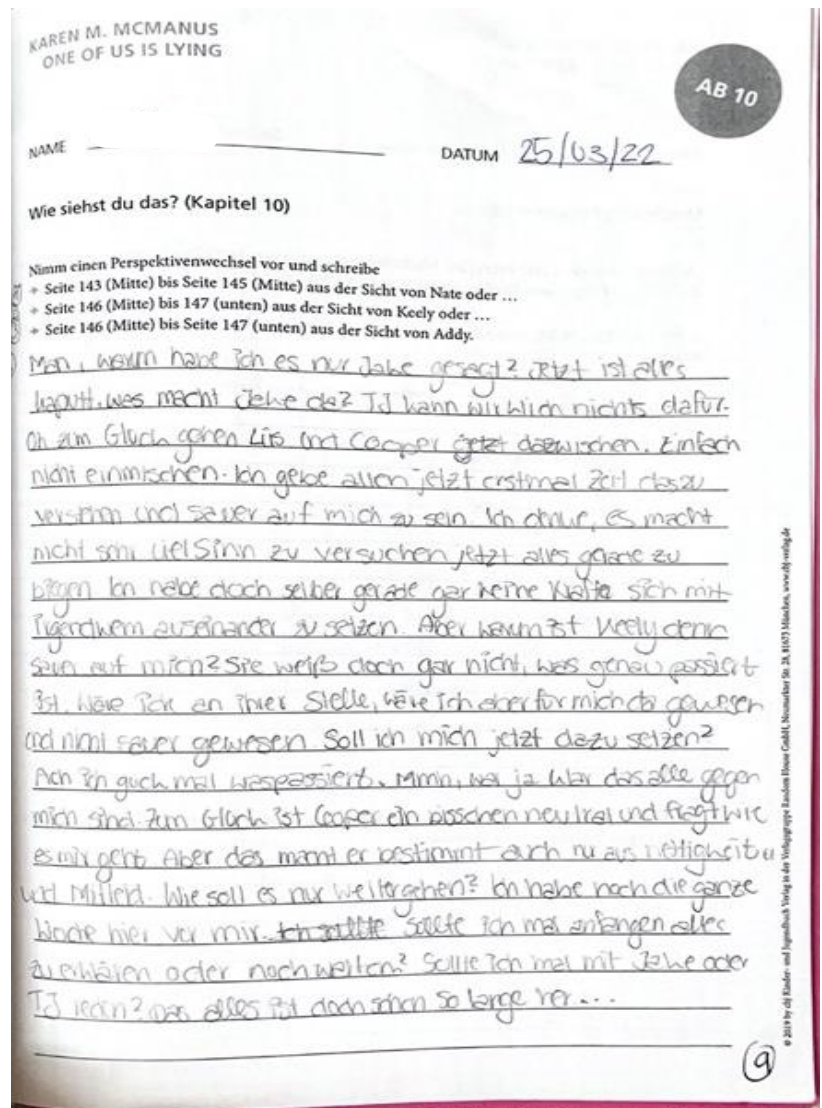 KAREN M. MCMANUS
ONE OF US IS LYING
AB 10
NAME
DATUM 25/03/22
Wie siehst du das? (Kapitel 10)
Nimm einen Perspektivenwechsel vor und schreibe
→ Seite 143 (Mitte) bis Seite 145 (Mitte) aus der Sicht von Nate oder ...
→ Seite 146 (Mitte) bis 147 (unten) aus der Sicht von Keely oder ...
→ Seite 146 (Mitte) bis Seite 147 (unten) aus der Sicht von Addy.
Man, warum habe ich es nur Jake gesagt? Jetzt ist alles
kaputt. was macht Jake da? TJ kann wirklich nichts dafür.
Oh zum Glück gehen und Cooper jetzt dazwischen. Einfach
nicht einmischen. Ich gebe allen jetzt erstmal Zeit das zu
verstehn und sauer auf mich zu sein. Ich , es macht
nicht sehr viel Sinn zu versuchen jetzt alles gerade zu
biegen Ich habe doch selber gerade gar keine sich mit
irgendwem auseinander zu setzen. Aber warum ist Keely denn
sauer auf mich? Sie weiß doch gar nicht, was genau passiert
ist. Wäre ich an ihrer Stelle, wäre ich aber für mich da gewesen
und nicht sauer gewesen. Soll ich mich jetzt dazu setzen?
Ach ich guck mal was passiert. Mmh, war ja klar das alle gegen
mich sind. Zum Glück ist Cooper ein bisschen neutral und fragt wie
es mir geht. Aber das macht er bestimmt auch nur aus
und Mitleid. Wie soll es nur weitergehen? Ich habe noch die ganze
Woche hier vor mir. Ich sollte Sollte ich mal anfangen alles
zu erklären oder noch warten? Sollte ich mal mit Jake oder
TJ reden? Das alles ist doch schon so lange her...
9
© 2019 by cbj Kinder- und Jugendbuch Verlag in der Verlagsgruppe Random House GmbH, Neumarkter Str. 28, 81673 München, www.cbj-verlag.de